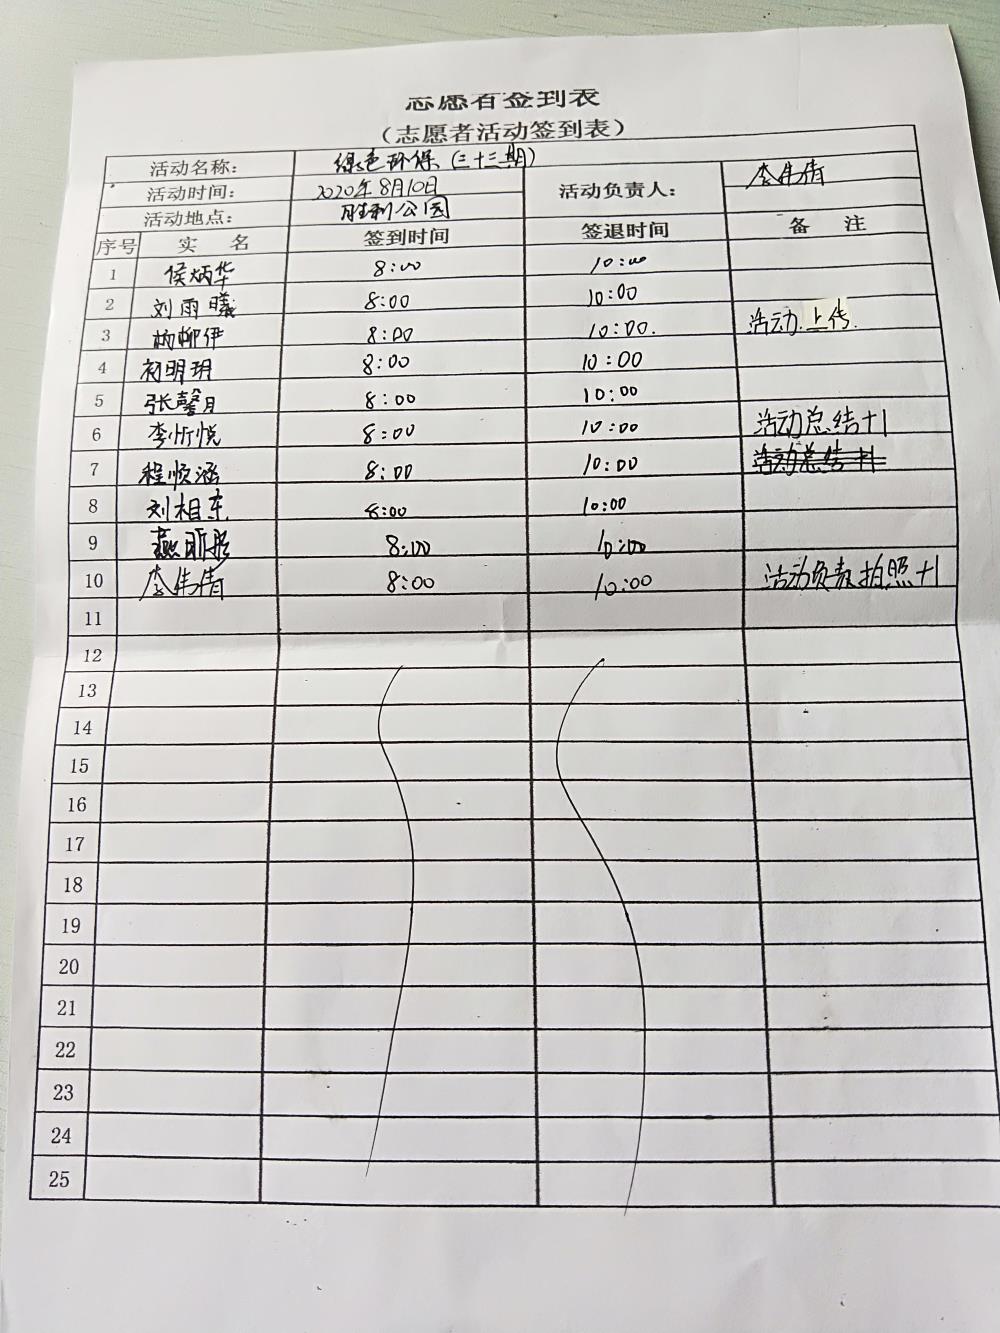 志愿者签到表
（志愿者活动签到表）
活动名称： 绿色环保（三十三期）
活动时间： 2020年8月10日 活动负责人： 李伟倩
活动地点： 胜利公园
序号 实 名 签到时间 签退时间 备 注
1 侯炳华 8:00 10:00
2 刘雨曦 8:00 10:00
3 杨柳伊 8:00 10:00. 活动上传.
4 初明玥 8:00 10:00
5 张馨月 8:00 10:00
6 李忻悦 8:00 10:00 活动总结+1
7 程顺涵 8:00 10:00 活动总结+1
8 刘相东 8:00 10:00
9 8:00 10:00
10 李伟倩 8:00 10:00 活动负责拍照+1
11
12
13
14
15
16
17
18
19
20
21
22
23
24
25